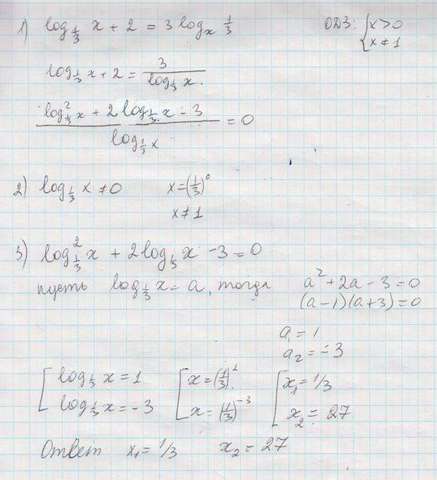 1) log_{1/3} x + 2 = 3 log_x 1/3   ОДЗ: { x > 0
x ≠ 1
log_{1/3} x + 2 = 3 / log_{1/3} x.
(log²_{1/3} x + 2 log_{1/3} x - 3) / log_{1/3} x = 0
2) log_{1/3} x ≠ 0   x = (1/3)^0
x ≠ 1
3) log²_{1/3} x + 2 log_{1/3} x - 3 = 0
пусть log_{1/3} x = a, тогда   a² + 2a - 3 = 0
(a-1)(a+3) = 0
a₁ = 1
a₂ = -3
[ log_{1/3} x = 1   [ x = (1/3)^1   [ x₁ = 1/3
log_{1/3} x = -3   x = (1/3)^{-3}   x₂ = 27
Ответ x₁ = 1/3   x₂ = 27